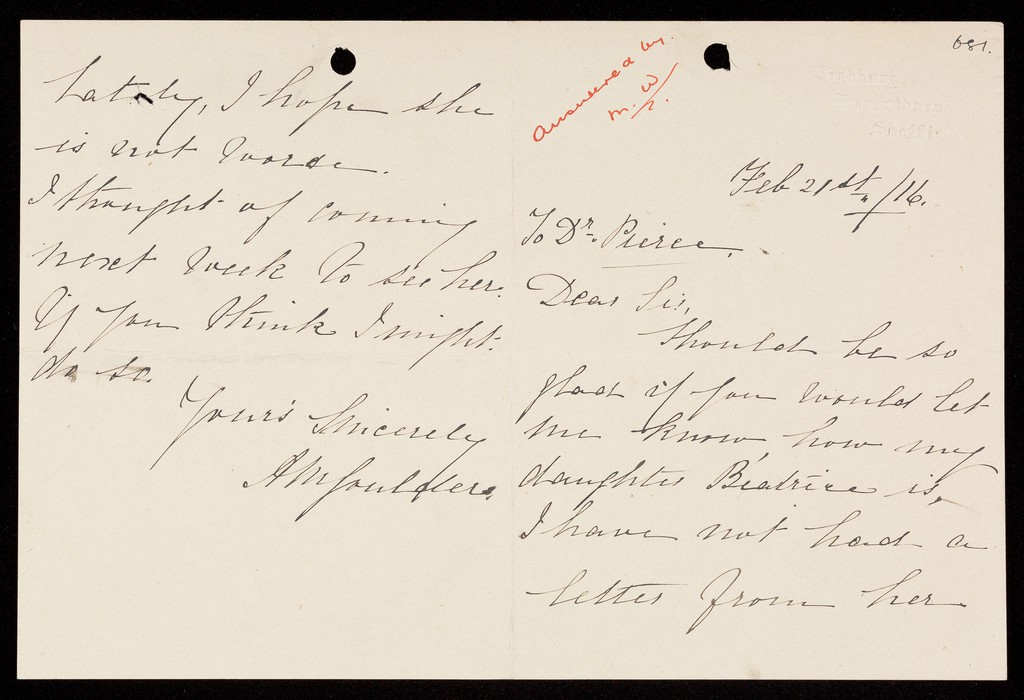 681.
answered by
M.W.
Feb 21st/16.
To Dr. Pierce.
Dear Sir,
Should be so
glad if you would let
me know, how my
daughter Beatrice is,
I have not had a
letter from her
Lately, I hope she
is not worse.
I thought of coming
next week to see her.
If you think I might.
do so.
Your's Sincerely
A M Goulder.